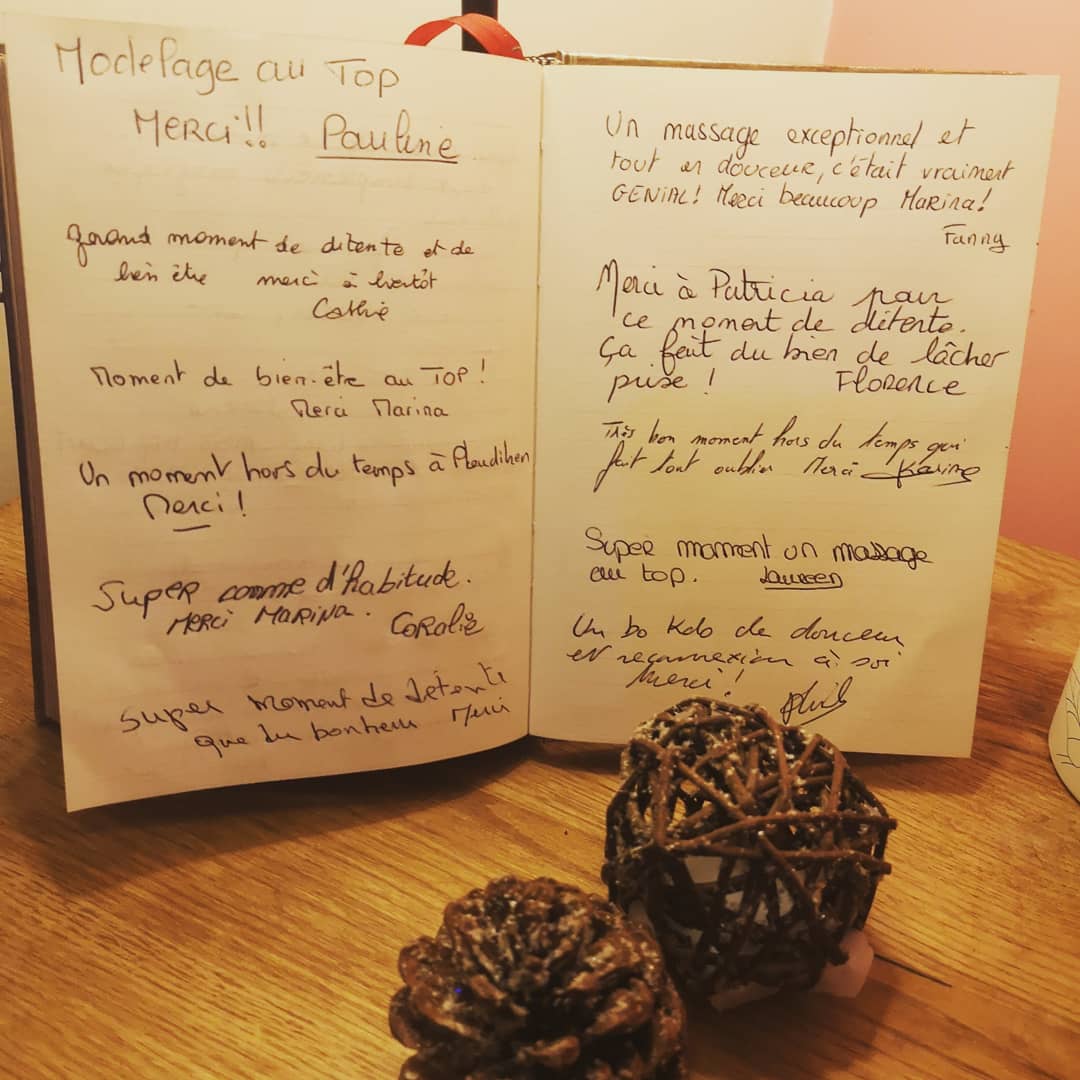 Modelage au Top
Merci!! Pauline
grand moment de détente et de
bien être merci à bientôt
Cathie
Moment de bien-être au TOP !
Merci Marina
Un moment hors du temps à Pleudihen
Merci !
Super comme d'habitude.
Merci Marina. Coralie
Super moment de détente
que du bonheur Merci
Un massage exceptionnel et
tout en douceur, c'était vraiment
GENIAL! Merci beaucoup Marina!
Fanny
Merci à Patricia pour
ce moment de détente.
Ça fait du bien de lâcher
prise ! Florence
Très bon moment hors du temps qui
fait tout oublier Merci Karine
Super moment un massage
au top. Laureen
Un bo Kdo de douceur
et reconnexion à soi
Merci !